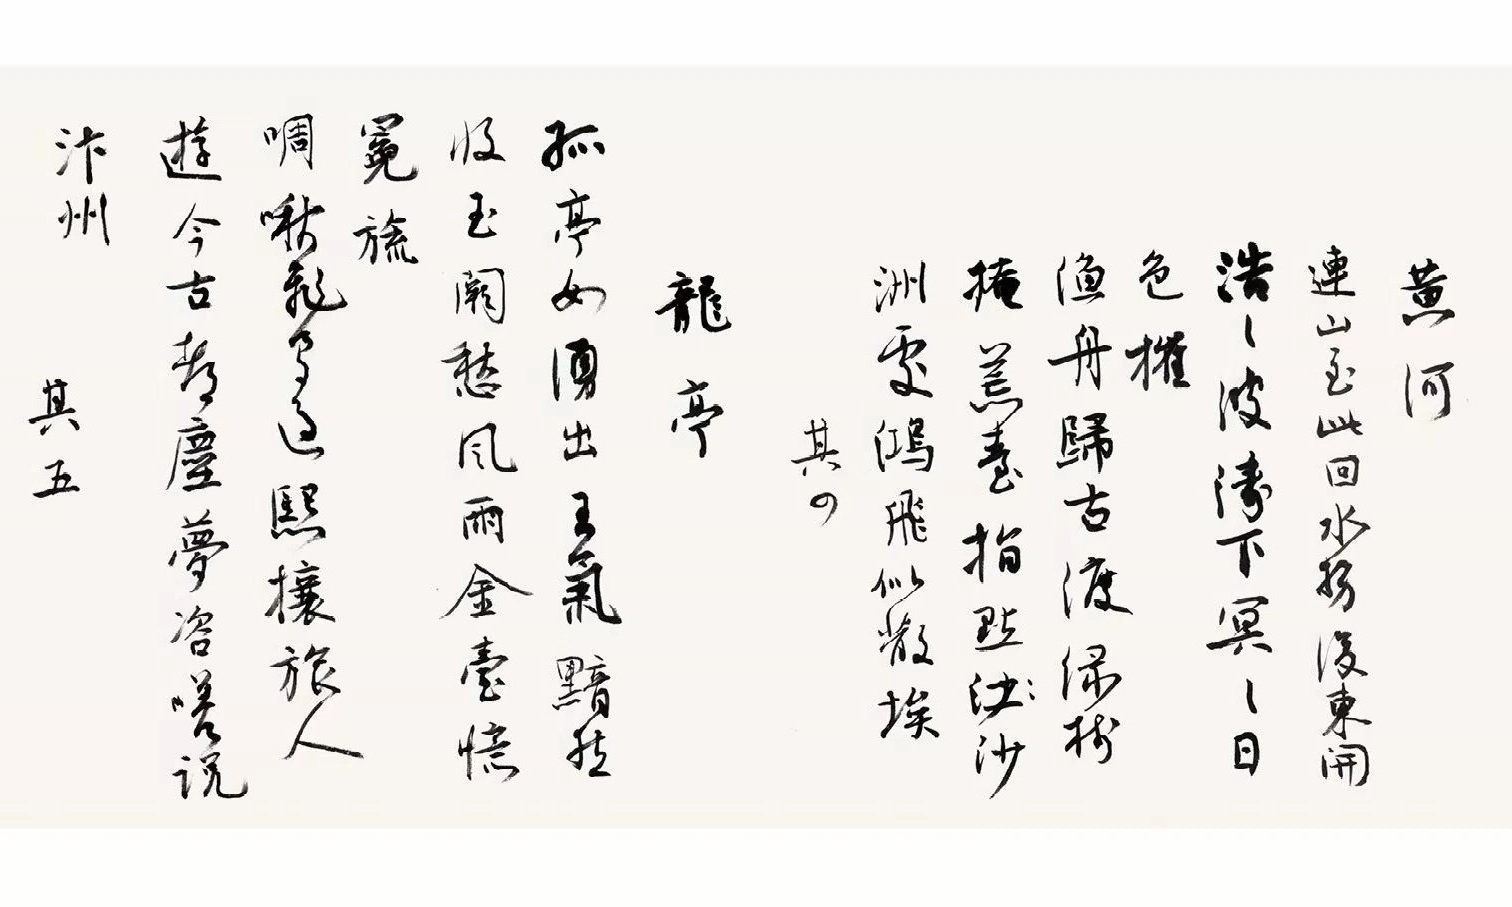 黄河
連山至此回水勢復東開
浩〻波濤下冥〻日
色摧
漁舟歸古渡緑樹
掩荒臺指點沙
洲處鴻飛似散埃
其四
龍亭
孤亭如湧出王氣黯然
收玉闕愁風雨金臺憶
冕旒
啁啾飛鳥過熙攘旅人
遊今古都塵夢咨嗟説
汴州
其五